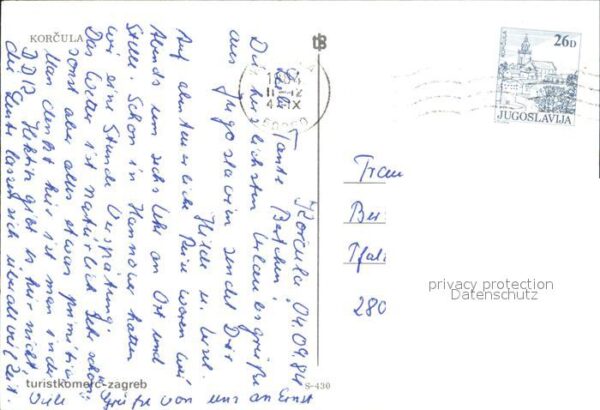 KORČULA
Korcula, 04.09.84
Liebe Tante Bertchen!
Die herzlichsten Urlaubsgrüße
aus Jugoslavien sendet Dir
Hilde u.
Auf abenteuerliche Reise waren wir
Abends um sechs Uhr an Ort und
Stelle. Schon in Hannover hatten
wir eine Stunde Verspätung.
Das Wetter ist natürlich sehr schön
sonst aber alles etwas primitiv
Man denkt hier ist man in der
DDR. Hektik gibt es hier nicht,
die Leute lassen sich überall viel Zeit.
Viele Grüße von uns an Ernst
turistkomerc-zagreb
S-430
26D
JUGOSLAVIJA
Frau
Ber
Pfal
280
privacy protection
Datenschutz